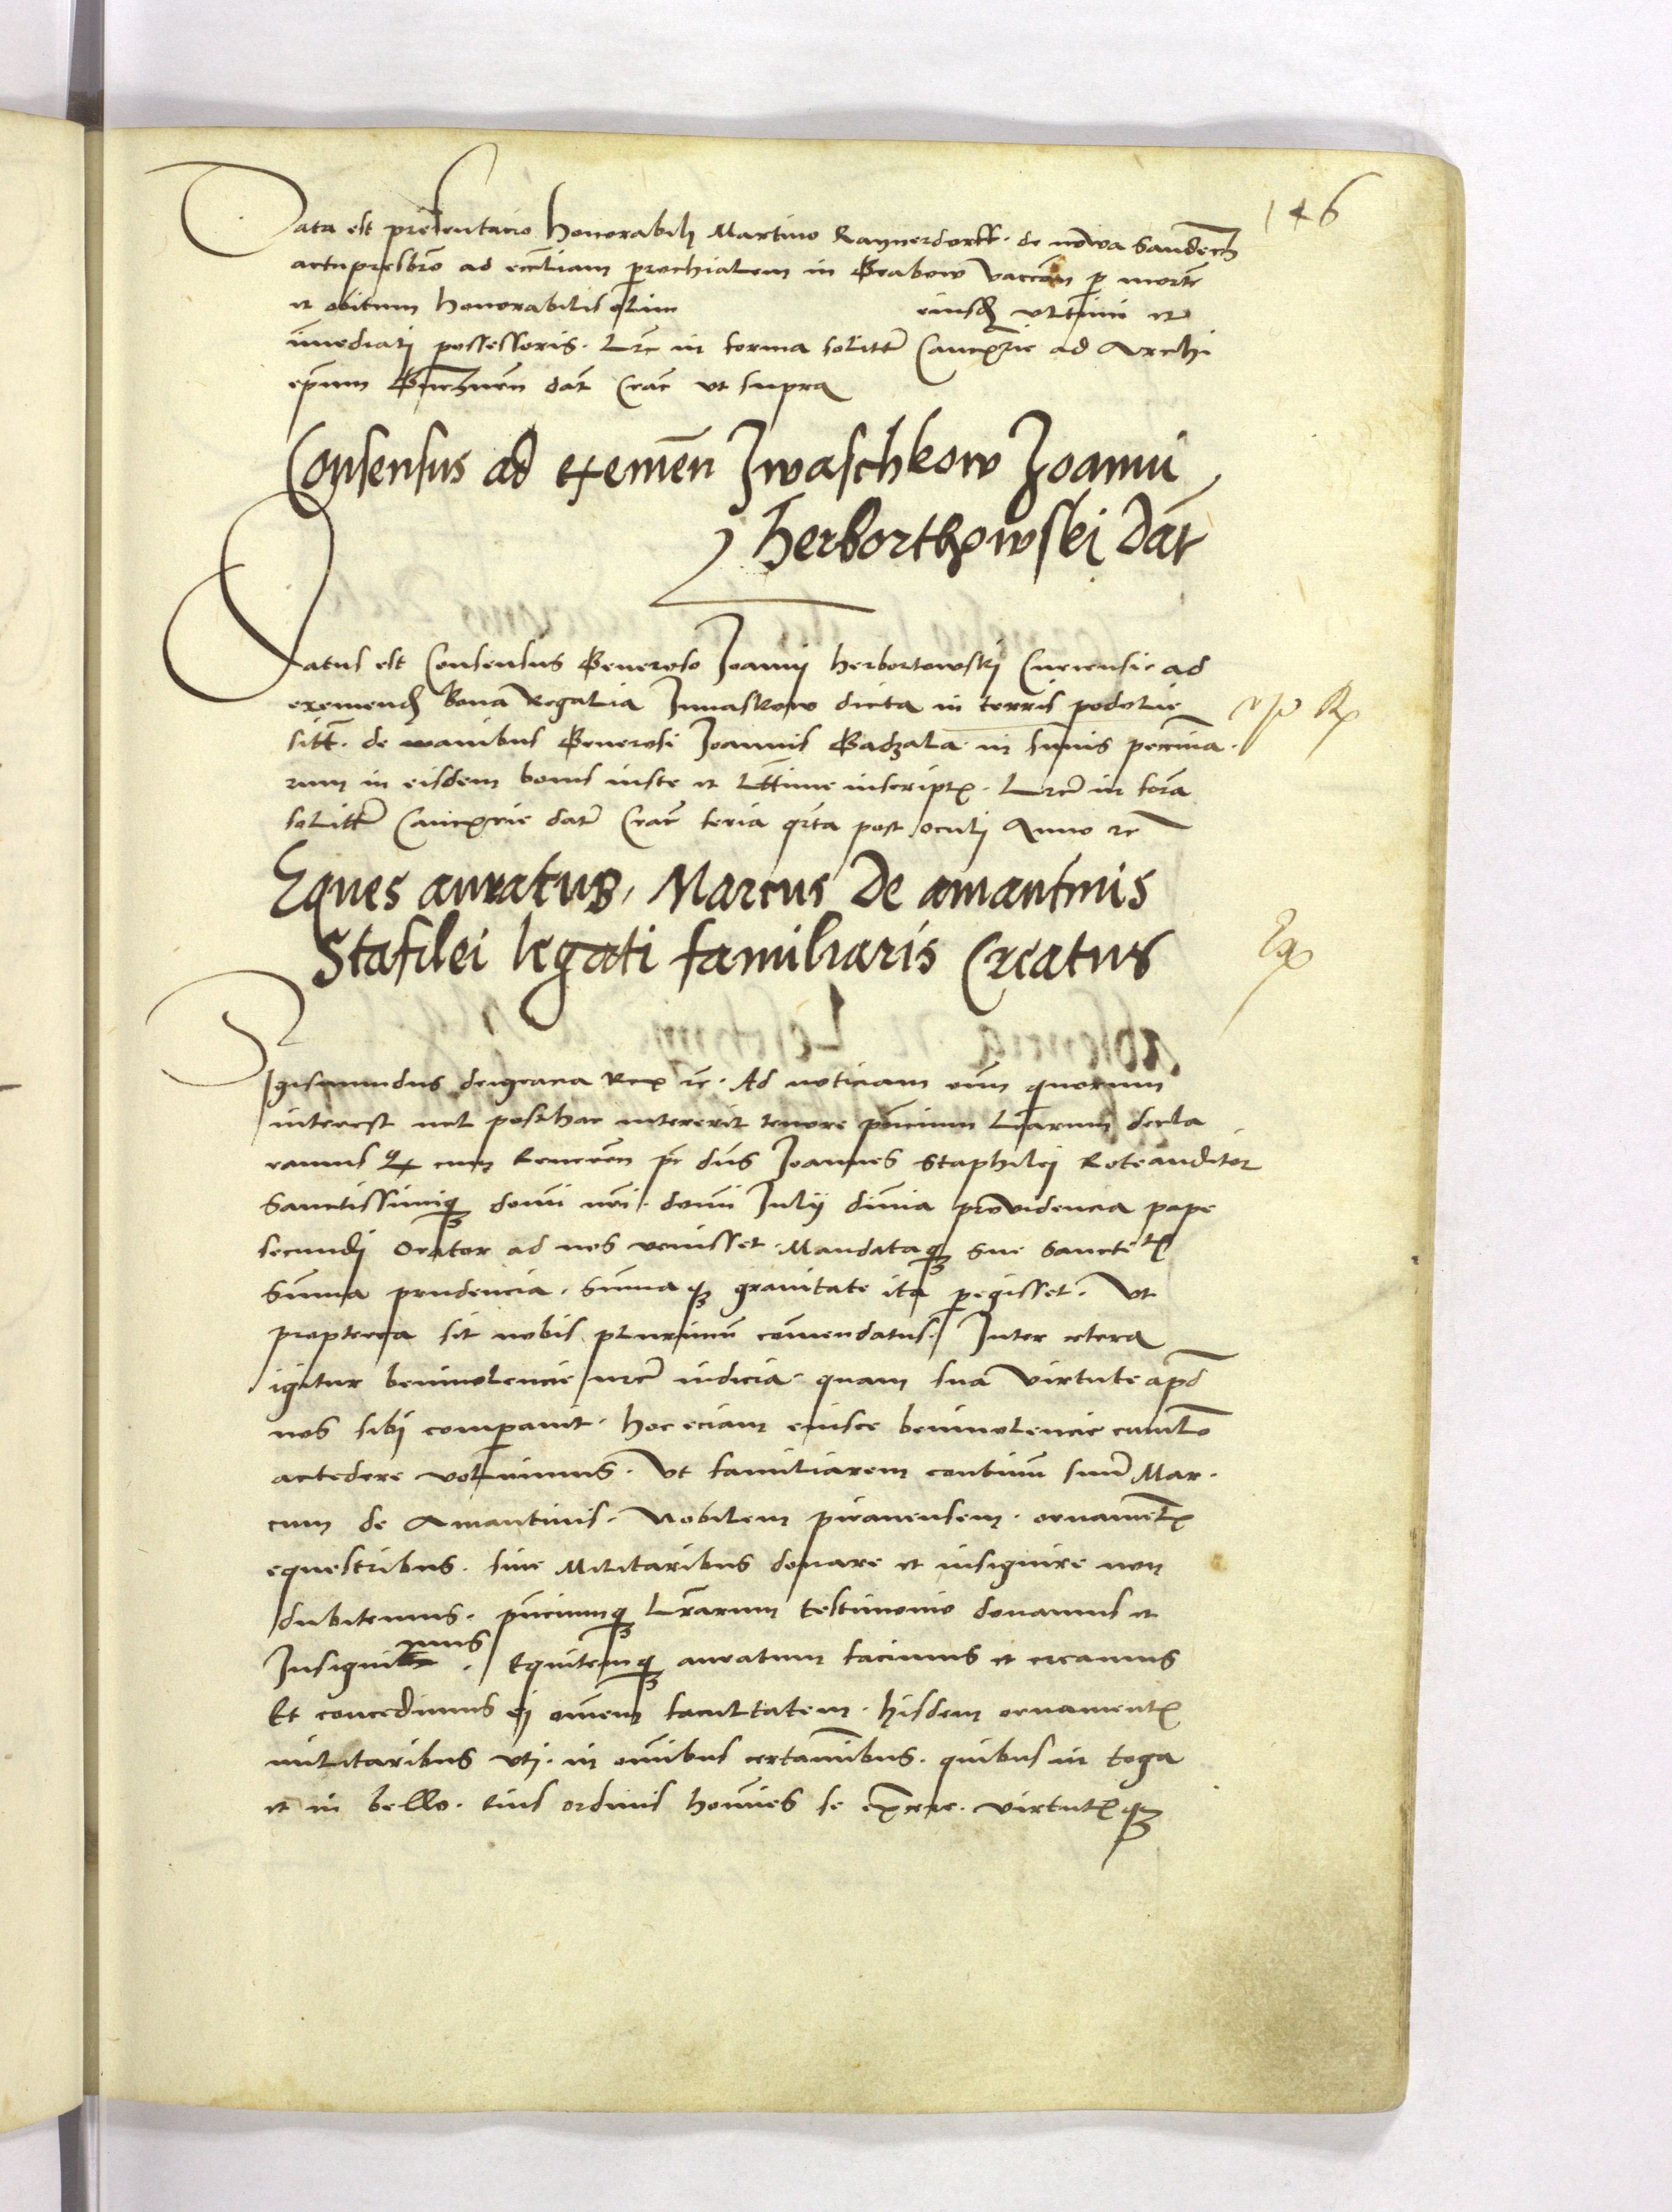 146
Data est presentacio honorabili Martino Raynerdorff de nowa Sandecz
actu presbro ad eccliam prochialem in Grabow vaccan p morte
et obitum honorabilis olim eiusd ultimi et
imediati possessoris. Lre in forma solitt Cancxrie ad Archi
epum Gnezneñ dat Crac ut supra
Consensus ad exemeñ Iwaschkow Joanni
Herborthowski Dat
Datus est Consensus Generoso Joanni Herbortowski ad
exemend bona Regalia Iwaskow dicta in terris podolie
sitt. de manibus Generosi Joannis in sumis peccunia.
rum in eisdem bonis iuste et lttime inscriptx. Lre in forma
solitt Cancxrie dat Crac feria qrta post oculi Anno rc
Eques auratus, Marcus De amantinis
Stafilei legati familiaris Creatus
Eq
Sigismundus dei gracia Rex rc. Ad noticiam om quorum
interest uel posthac intererit tenore pñcium Lrarum decla
ramus qx cum Reueren pr dns Joannes Staphilei Rote auditor
Sanctissimiq domi nri domi Julij diuina providencia pape
secundi Orator ad nos venisset. Mandataq sue Sanctetx
Suma prudencia. Sumaq grauitate ita pegisset. Ut
propterea sit nobis plurimum comendatus. Inter cetera
igitur beniuolencie nre indicia quam sua virtute apd
nos sibi comparauit. hoc eciam eiusce beniuolencie cumulo
accedere voluimus. Ut familiarem continuum suum Mar.
cum de Amantinis. Nobilem piranensem. ornamentx
equestribus. siue Militaribus donare et insignire non
dubitemus. pñciumq Lrarum testimonio donamus et
Insignimus. Equitemq auratum facimus et creamus
Et concedimus ei omem facultatem. hisdem ornamentx
militaribus uti. in omibus certamibus. quibus in toga
et in bello. eius ordinis homies se exercere. virtutxq